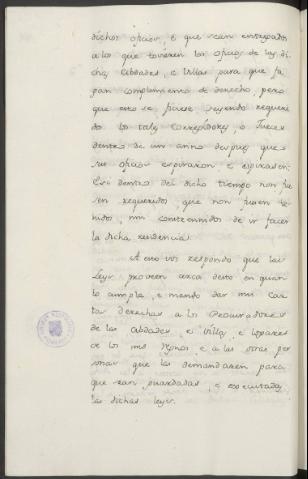 dichos oficios, e que sean entregados
a los que tovieren los oficios de las di
chas cibdades, e villas para que fa
gan complimiento de derecho, pero
que esto se ficiese seyendo requeri
do los tales Corregidores, o Jueces
dentro de un anno despues que
sus oficios espiraron e espirasen:
E si dentro del dicho tiempo non fue
sen requeridos, que non fuesen te
nidos, nin contennidos de ir facer
la dicha residencia.
A esto vos respondo que las
Leyes proveen acerca desto en quan
to ampla, e mando dar mi car
ta derechas a los Procuradores
de las cibdades, e villas, e logares
de los mis Regnos e a las otras per
sonas que la demandaren para
que sean guardadas, e executadas
las dichas leyes.